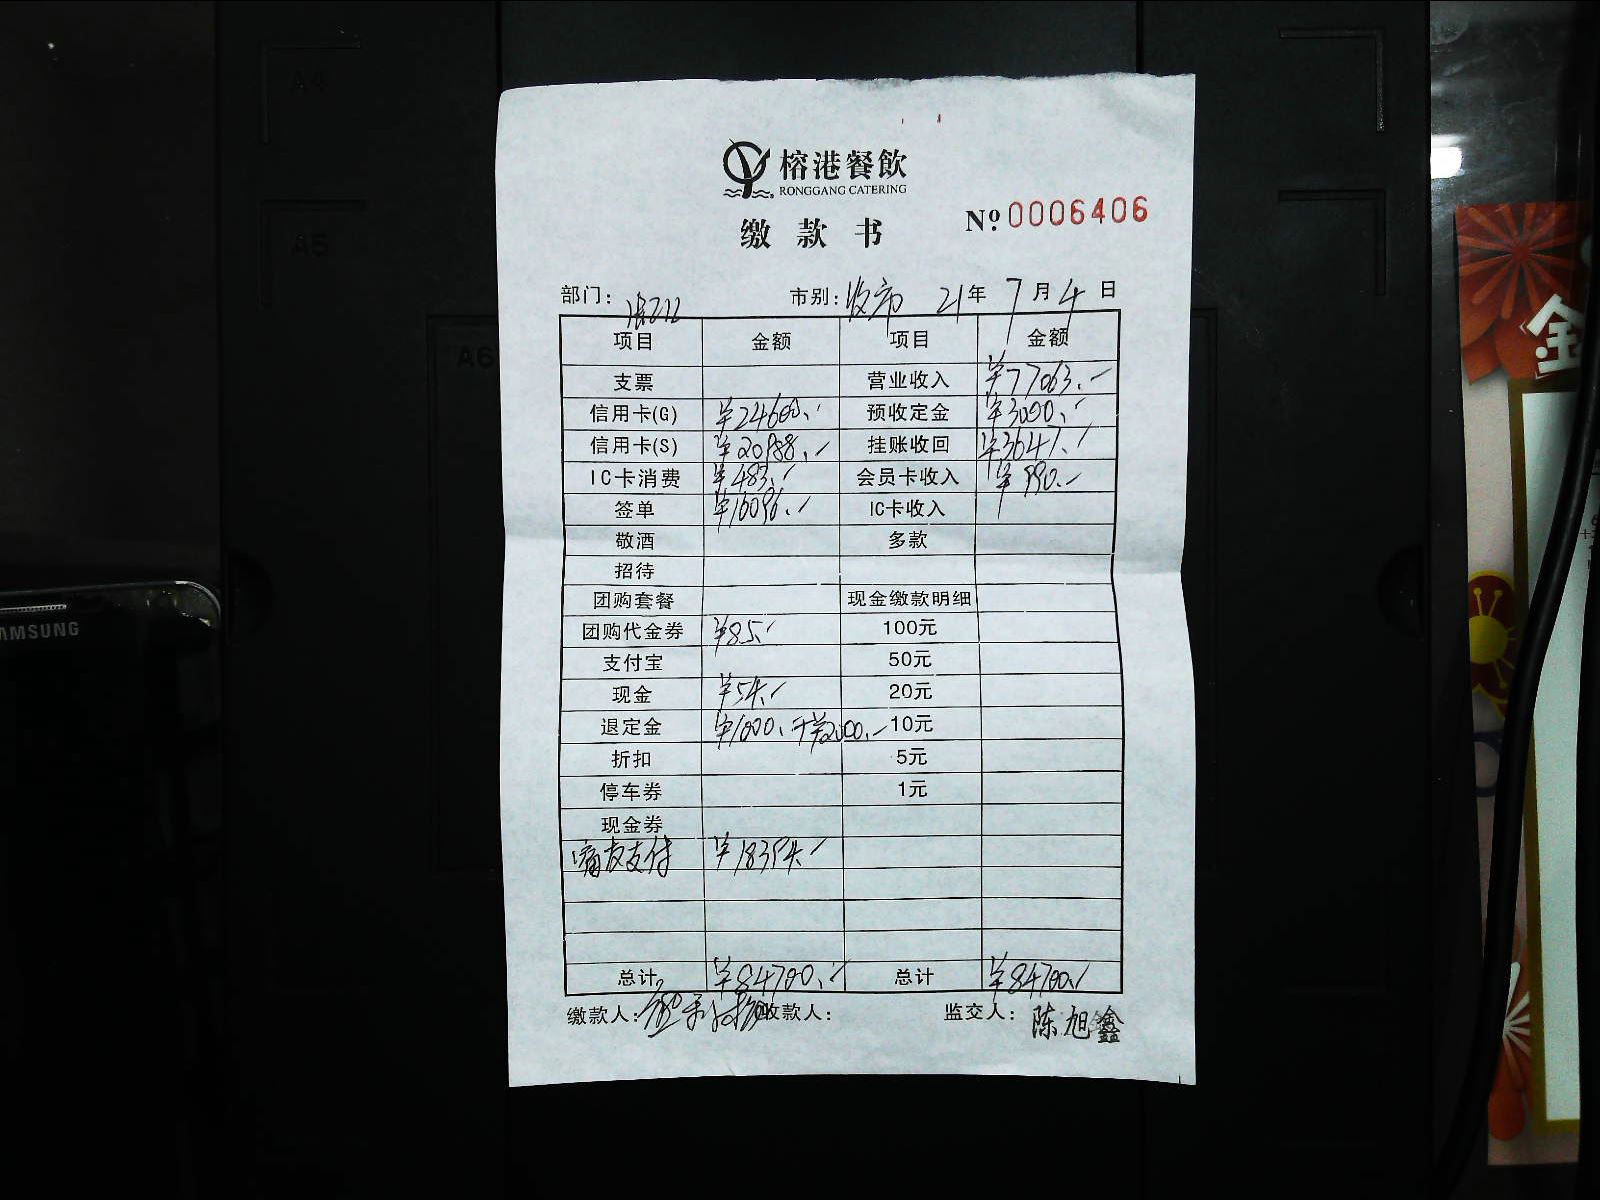 A4
A5
A6
AMSUNG
金
榕港餐飲
RONGGANG CATERING
缴款书
Nº 0006406
部门: 市别: 收市 21年 7月 4日
项目 金额 项目 金额
支票 营业收入 ¥77063.
信用卡(G) ¥24600. 预收定金 ¥3000.
信用卡(S) ¥20988. 挂账收回 ¥3647.
IC卡消费 ¥483. 会员卡收入 ¥990.
签单 ¥16096. IC卡收入
敬酒 多款
招待
团购套餐 现金缴款明细
团购代金券 ¥85. 100元
支付宝 50元
现金 ¥54. 20元
退定金 ¥1000.+¥2000. 10元
折扣 5元
停车券 1元
现金券
支付 ¥18394.
总计 ¥84700. 总计 ¥84700.
缴款人: 收款人: 监交人: 陈旭鑫